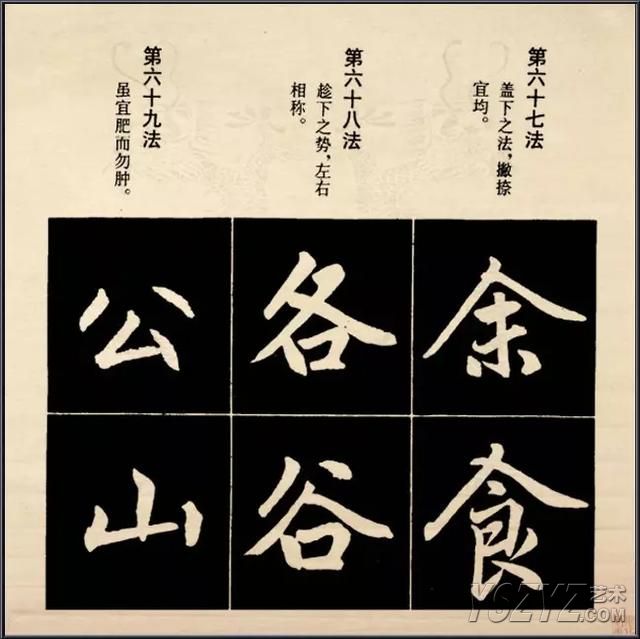 第六十七法
盖下之法，撇捺
宜均。
第六十八法
趁下之势，左右
相称。
第六十九法
虽宜肥而勿肿。
余
食
各
谷
公
山
YGZYZ艺术
.COM